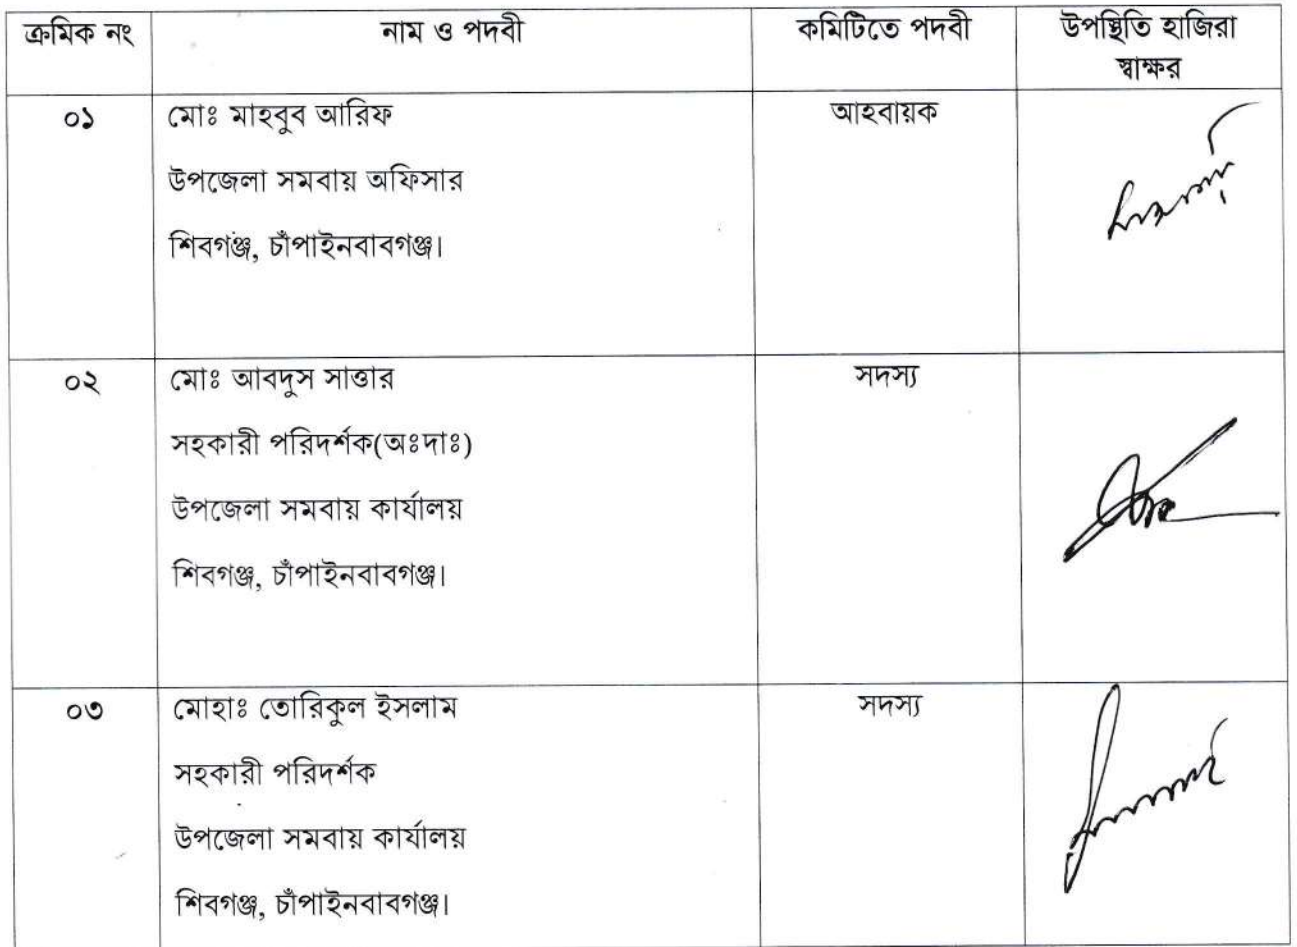 ক্রমিক নং নাম ও পদবী কমিটিতে পদবী উপস্থিতি হাজিরা
স্বাক্ষর
০১ মোঃ মাহবুব আরিফ আহবায়ক
উপজেলা সমবায় অফিসার
শিবগঞ্জ, চাঁপাইনবাবগঞ্জ।
০২ মোঃ আবদুস সাত্তার সদস্য
সহকারী পরিদর্শক(অঃদাঃ)
উপজেলা সমবায় কার্যালয়
শিবগঞ্জ, চাঁপাইনবাবগঞ্জ।
০৩ মোহাঃ তোরিকুল ইসলাম সদস্য
সহকারী পরিদর্শক
উপজেলা সমবায় কার্যালয়
শিবগঞ্জ, চাঁপাইনবাবগঞ্জ।